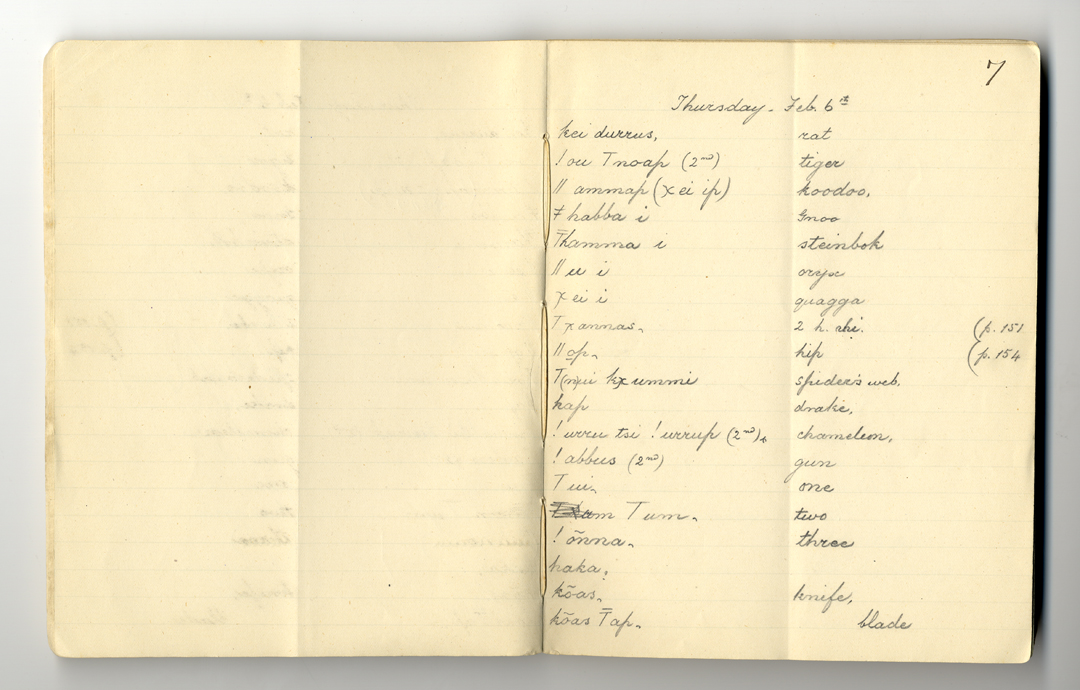 7
Thursday - Feb. 6th
kei durrus, rat
! ou Tnoap (2nd) tiger
ǁ ammap (χei ip) koodoo,
ǂ habba i Gnoo
T̄hamma i steinbok
ǁ u i oryx
χ ei i quagga
Tχannas, 2 h. rhi. (p. 151
ǁ o̲p, hip (p. 154
T(n)ui kχummi spider's web,
kap drake,
! urru tsi ! urrup (2nd), chameleon,
! abbus (2nd) gun
Tui, one
Tum, two
! õnna, three
haka,
kōas, knife,
kōas T̄ap, blade